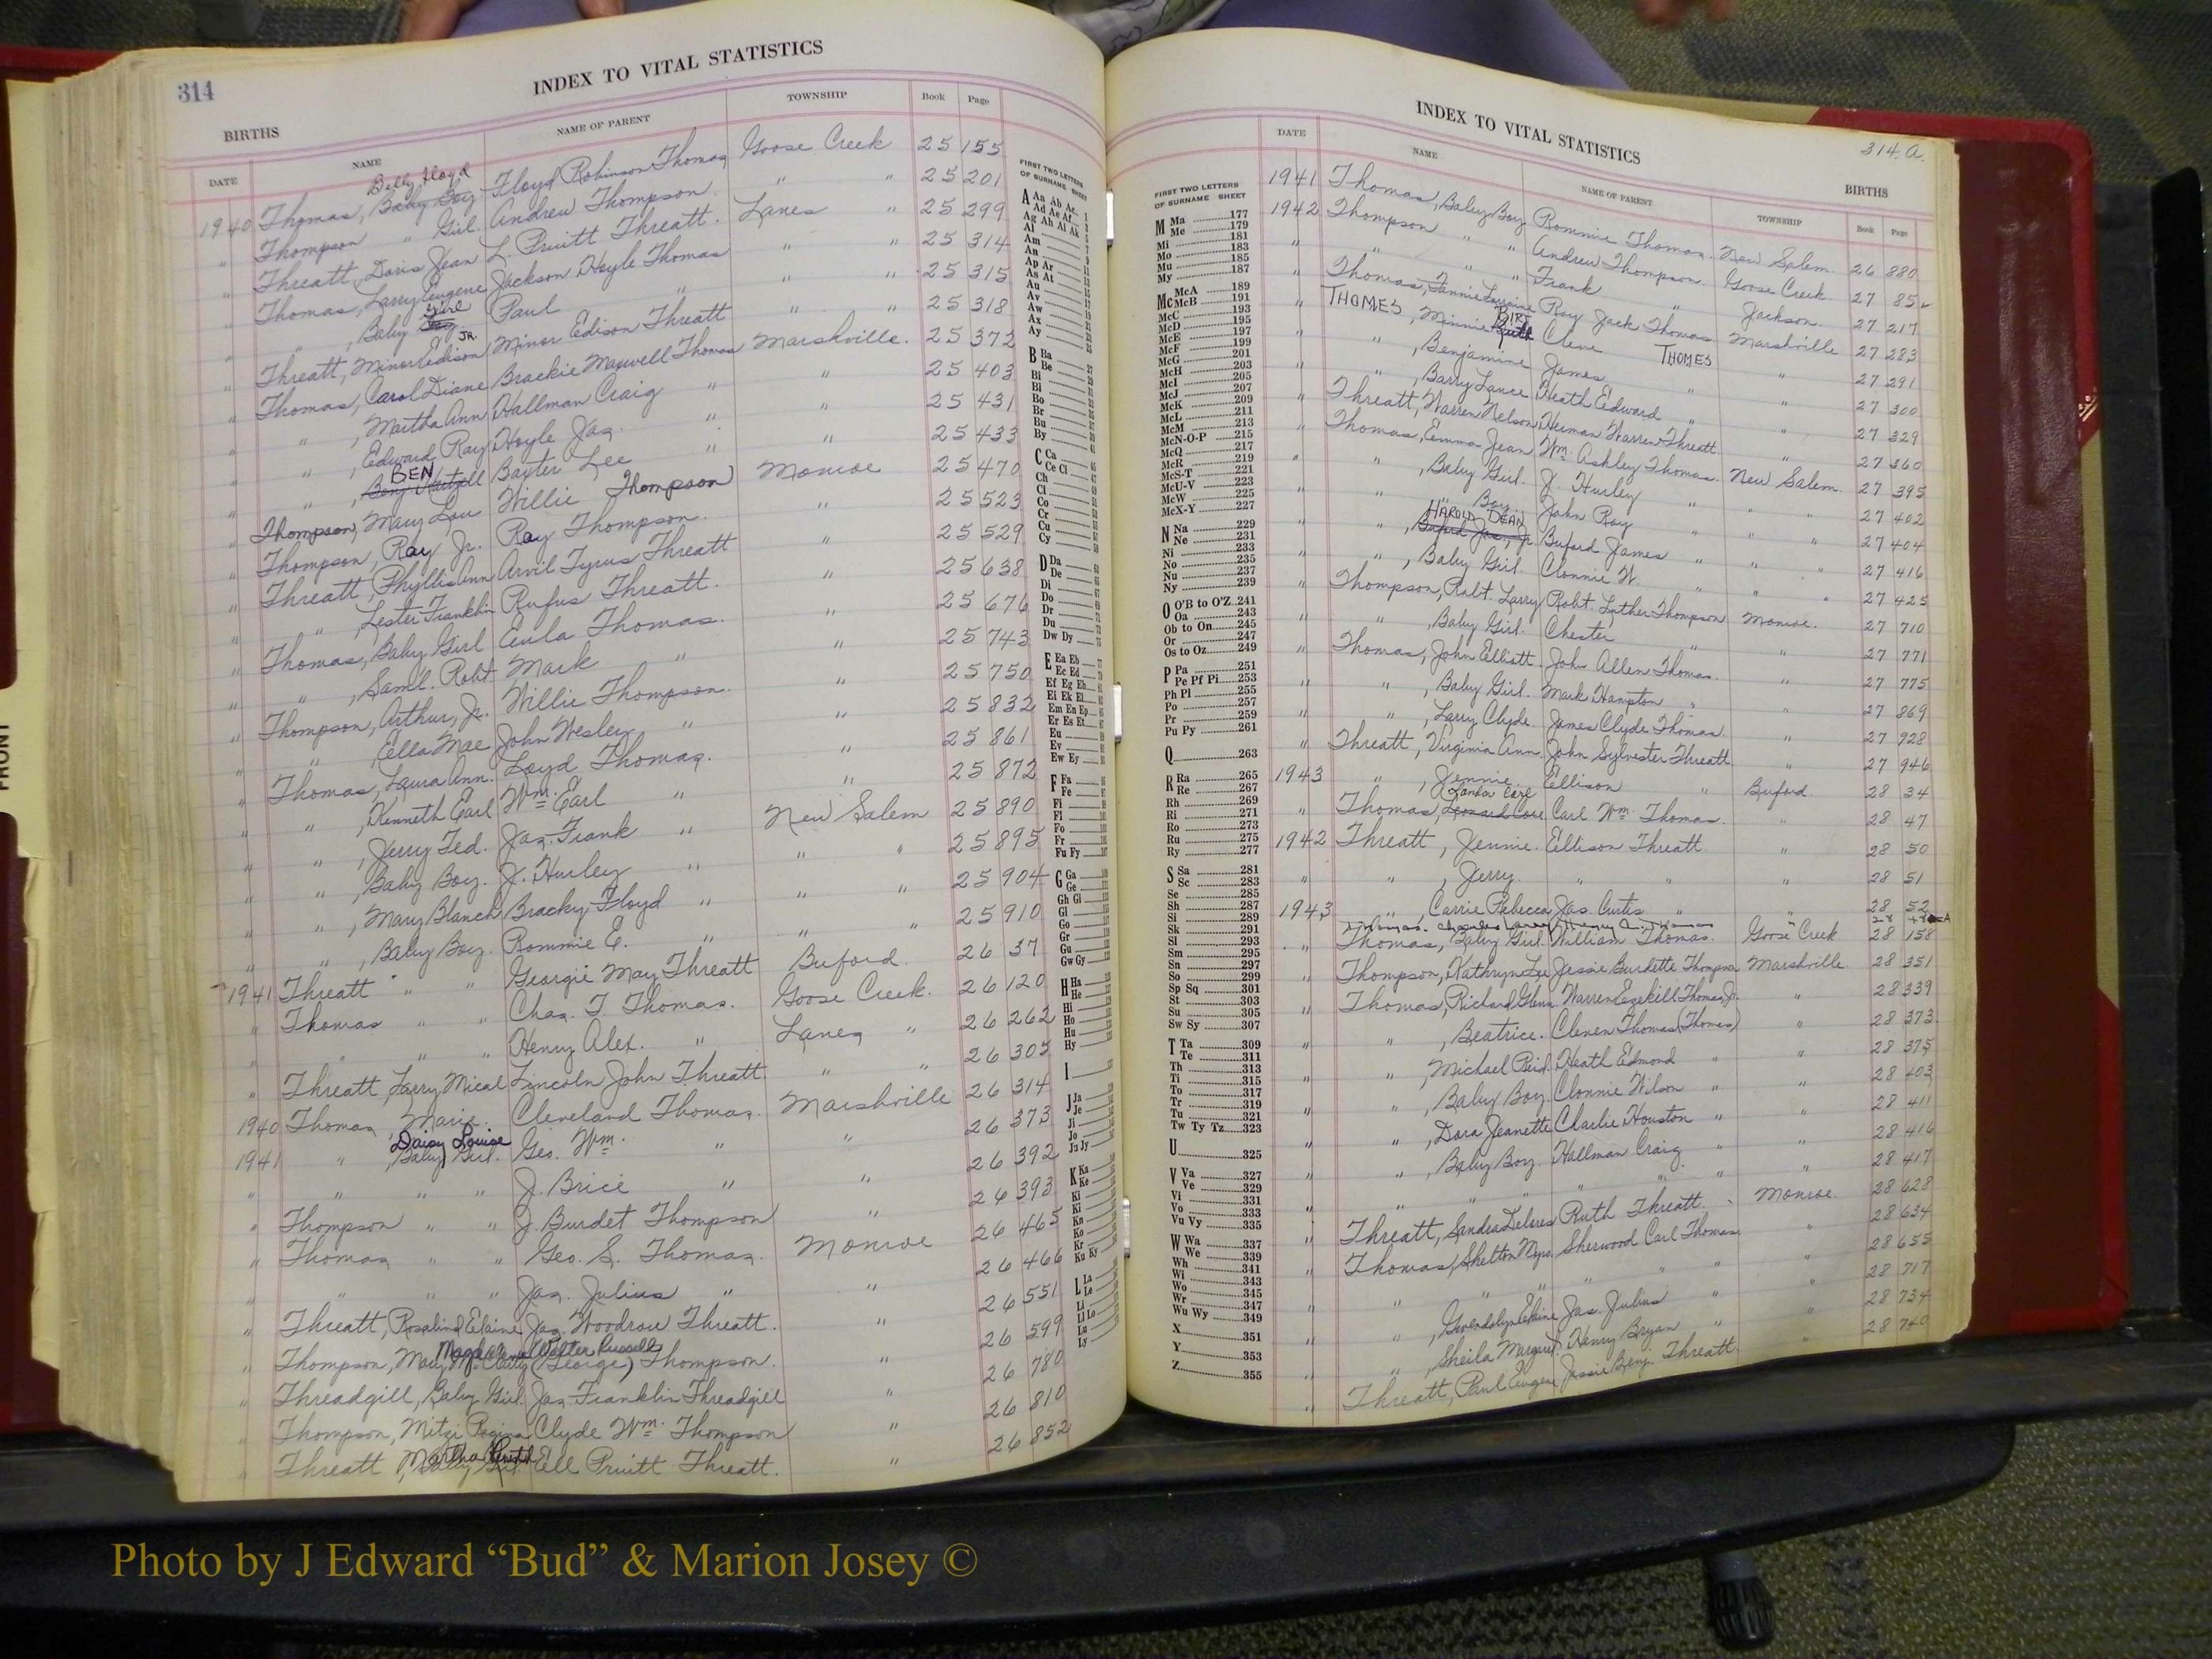 314
INDEX TO VITAL STATISTICS
BIRTHS
DATE NAME NAME OF PARENT TOWNSHIP Book Page
Billy Floyd
1940 Thomas, Baby Boy Floyd Robinson Thomas Goose Creek 25 155
" Thompson " Girl. Andrew Thompson. " " 25 201
" Threatt, Doris Jean L. Pruitt Threatt. Lanes " 25 299
" Thomas, Larry Eugene Jackson Hoyle Thomas " " 25 314
Girl
" " , Baby Boy Paul " " " 25 315
JR.
" Threatt, Minor Edison Minor Edison Threatt " " 25 318
" Thomas, Carol Diane Brackie Maxwell Thomas Marshville. 25 372
" " , Martha Ann Hallman Craig " " 25 403
" " , Edward Ray Hoyle Jas. " " 25 431
BEN
" " , Benj Hartsell Baxter Lee " " 25 433
" Thompson, Mary Lou Willie Thompson Monroe 25 470
" Thompson, Ray Jr. Ray Thompson. " 25 523
" Threatt, Phyllis Ann Arvil Tyrus Threatt " 25 529
" " , Lester Franklin Rufus Threatt. " 25 638
" Thomas, Baby Girl Eula Thomas. " 25 676
" " , Saml. Robt. Mark " " 25 743
" Thompson, Arthur, Jr. Willie Thompson. " 25 750
" " , Ella Mae John Wesley " " 25 832
" Thomas, Laura Ann. Loyd Thomas. " 25 861
" " , Kenneth Earl Wm. Earl " " 25 872
" " , Jerry Ted. Jas. Frank " New Salem 25 890
" " , Baby Boy. J. Hurley " " " 25 895
" " , Mary Blanch Bracky Floyd " " " 25 904
" " , Baby Boy. Rommie E. " " " 25 910
1941 Threatt " " Georgie May Threatt Buford. 26 37
" Thomas " " Chas. T. Thomas. Goose Creek. 26 120
" " " " Henry Alex. " Lanes " 26 262
" Threatt, Larry Mical Lincoln John Threatt. " " 26 305
1940 Thomas, Marie. Cleveland Thomas. Marshville 26 314
Daisy Louise
1941 " , Baby Girl. Geo. Wm. " " 26 373
" " " " J. Brice " " 26 392
" Thompson " " J. Burdet Thompson " 26 393
" Thomas " " Geo. S. Thomas. Monroe 26 465
" " " " Jas. Julius " " 26 466
" Threatt, Rosalind Elaine Jas. Woodrow Threatt. " 26 551
Walter Russell
" Thompson, Mary (George) Thompson. " 26 599
" Threadgill, Baby Girl. Jas. Franklin Threadgill " 26 780
" Thompson, Mitzi Regina Clyde Wm. Thompson " 26 810
Martha
" Threatt, Baby Girl. Ell Pruitt Threatt. " 26 852
FIRST TWO LETTERS
OF SURNAME SHEET
A Aa Ab Ac
Ad Ae Af
Ag Ah Ai Ak
Al
Am
An
Ap Ar
As At
Au
Av
Aw
Ax
Ay
B Ba
Be
Bi
Bl
Bo
Br
Bu
By
C Ca
Ce Ci
Ch
Cl
Co
Cr
Cu
Cy
D Da
De
Di
Do
Dr
Du
Dw Dy
E Ea Eb
Ec Ed
Ef Eg Eh
Ei Ek El
Em En Ep
Er Es Et
Eu
Ev
Ew Ey
F Fa
Fe
Fi
Fl
Fo
Fr
Fu Fy
G Ga
Ge
Gh Gi
Gl
Go
Gr
Gu
Gw Gy
H Ha
He
Hi
Ho
Hu
Hy
I
J Ja
Je
Ji
Jo
Ju Jy
K Ka
Ke
Ki
Kl
Kn
Ko
Kr
Ku Ky
L La
Le
Li
Ll Lo
Lu
Ly
INDEX TO VITAL STATISTICS
314.A.
BIRTHS
DATE NAME NAME OF PARENT TOWNSHIP Book Page
1941 Thomas, Baby Boy Rommie Thomas. New Salem. 26 880
1942 Thompson " " Andrew Thompson. Goose Creek 27 85
" " " " Frank " Jackson. 27 217
" Thomas, Fannie Lorraine Ray Jack Thomas Marshville 27 283
THOMES BIRT
" , Minnie Cleve THOMES " 27 291
" " , Benjamine James " " 27 300
" " , Barry Lance Heath Edward " " 27 329
" Threatt, Warren Nelson Herman Warren Threatt " 27 360
" Thomas, Emma Jean Wm. Ashley Thomas. New Salem. 27 395
" " , Baby Girl. J. Hurley " " " 27 402
" " " Boy. John Ray " " " 27 404
HAROLD DEAN
" " , Buford Jas., Jr. Buford James " " " 27 416
" " , Baby Girl. Clonnie W. " " " 27 425
" Thompson, Robt. Larry Robt. Luther Thompson Monroe. 27 710
" " , Baby Girl. Chester " " 27 771
" Thomas, John Elliott. John Allen Thomas. " 27 775
" " , Baby Girl. Mark Hampton " " 27 869
" " , Larry Clyde. James Clyde Thomas. " 27 928
" Threatt, Virginia Ann. John Sylvester Threatt " 27 946
1943 " , Jennie. Ellison " Buford. 28 34
" Thomas, Carl Wm. Thomas. " 28 47
1942 Threatt, Jennie. Ellison Threatt " 28 50
" " , Jerry. " " " 28 51
1943 " , Carrie Rebecca Jas. Curtis " " 28 52
Thomas. Charles Larry Henry Thomas
" Thomas, Baby Girl. William Thomas. Goose Creek 28 158
Thompson, Kathryn Lee Jessie Burdette Thompson Marshville. 28 351
" Thomas, Richard Glenn. Warren Ezekill Thomas, Jr. " 28 339
" " , Beatrice. Cleven Thomas (Thomes) " 28 373
" " , Michael Reid. Heath Edmond " " 28 375
" " , Baby Boy. Clonnie Wilson " " 28 403
" " , Dora Jeanette Charlie Houston " " 28 411
" " , Baby Boy. Hallman Craig " " 28 416
" " " " " " " " 28 417
" Threatt, Sandra Delores Ruth Threatt. Monroe. 28 628
" Thomas, Shelton Myrs. Sherwood Carl Thomas " 28 634
" " " " " " 28 655
" " , Gwendolyn Elaine Jas. Julius " " 28 717
" " , Sheila Margaret. Henry Bryan " " 28 734
" Threatt, Paul Eugene Jessie Benj. Threatt. " 28 740
FIRST TWO LETTERS
OF SURNAME SHEET
M Ma 177
Me 179
Mi 181
Mo 183
Mu 185
My 187
Mc McA 189
McB 191
McC 193
McD 195
McE 197
McF 199
McG 201
McH 203
McI 205
McJ 207
McK 209
McL 211
McM 213
McN-O-P 215
McQ 217
McR 219
McS-T 221
McU-V 223
McW 225
McX-Y 227
N Na 229
Ne 231
Ni 233
No 235
Nu 237
Ny 239
O O'B to O'Z 241
Oa 243
Ob to On 245
Or 247
Os to Oz 249
P Pa 251
Pe Pf Pi 253
Ph Pl 255
Po 257
Pr 259
Pu Py 261
Q 263
R Ra 265
Re 267
Rh 269
Ri 271
Ro 273
Ru 275
Ry 277
S Sa 281
Sc 283
Se 285
Sh 287
Si 289
Sk 291
Sl 293
Sm 295
Sn 297
So 299
Sp Sq 301
St 303
Su 305
Sw Sy 307
T Ta 309
Te 311
Th 313
Ti 315
To 317
Tr 319
Tu 321
Tw Ty Tz 323
U 325
V Va 327
Ve 329
Vi 331
Vo 333
Vu Vy 335
W Wa 337
We 339
Wh 341
Wi 343
Wo 345
Wr 347
Wu Wy 349
X 351
Y 353
Z 355
FRONT
Photo by J Edward “Bud” & Marion Josey ©